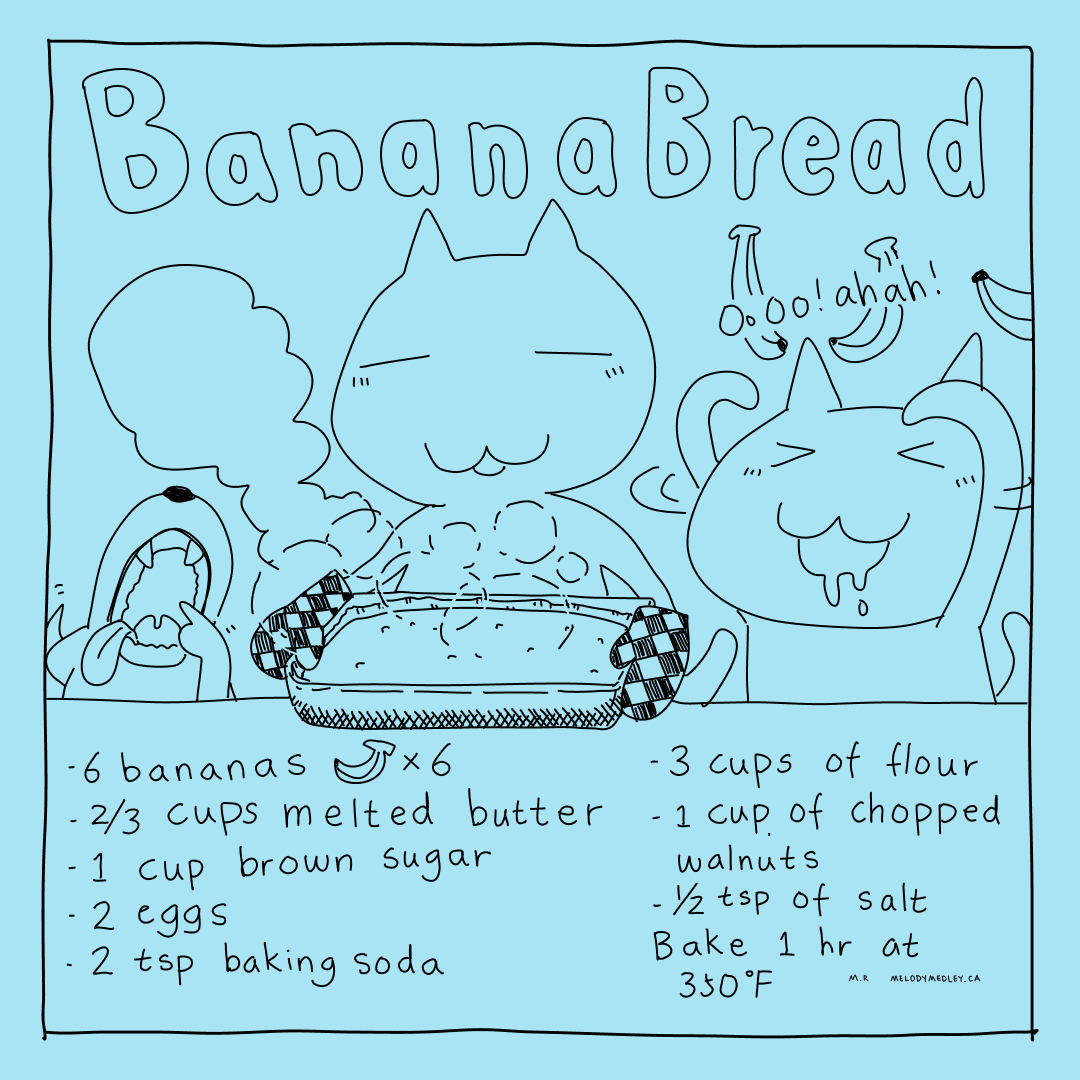 Banana Bread
Oooo! ahah!
-6 bananas x6
-2/3 cups melted butter
-1 cup brown sugar
-2 eggs
-2 tsp baking soda
-3 cups of flour
-1 cup of chopped
walnuts
-1/2 tsp of salt
Bake 1 hr at
350°F
M.R MELODYMEDLEY.CA